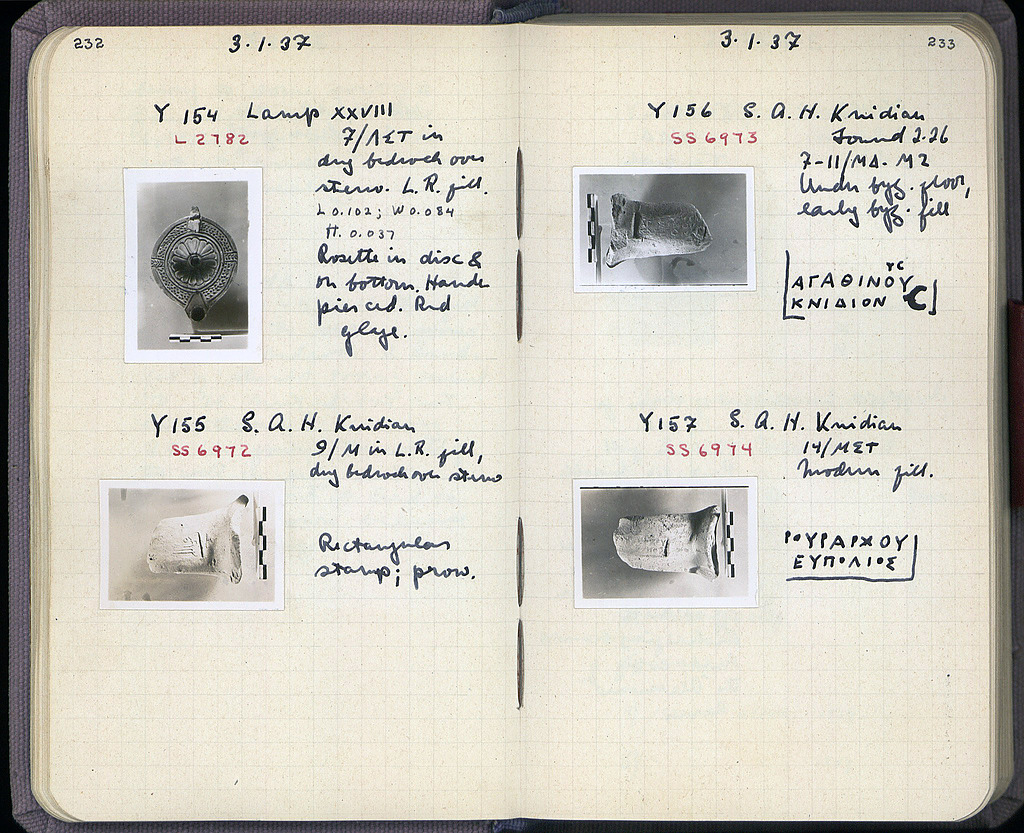 232
3.1.37
Y 154 Lamp XXVIII
L 2782
7/ΛΣΤ in
dug bedrock over
stereo. L.R. fill.
L 0.102; W 0.084
H. 0.037
Rosette in disc &
on bottom. Handle
pierced. Red
glaze.
Y 155 S. A. H. Knidian
SS 6972
9/Μ in L.R. fill,
dug bedrock over stereo
Rectangular
stamp; prow.
3.1.37
233
Y 156 S. A. H. Knidian
SS 6973
Found 2.26
7-11/ΜΔ. Μ2
Under byz. floor,
early byz. fill
ΥϹ
ΑΓΑΘΙΝΟΥ
ΚΝΙΔΙΟΝ
Y 157 S. A. H. Knidian
SS 6974
14/ΜΣΤ
Modern fill.
ΡΟΥΡΑΡΧΟΥ
ΕΥΠΟΛΙΟΣ